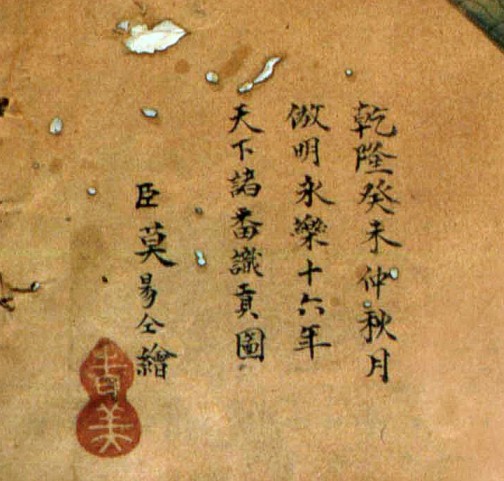 乾隆癸未仲秋月
倣明永樂十六年
天下諸番識貢圖
臣莫易仝繪
美